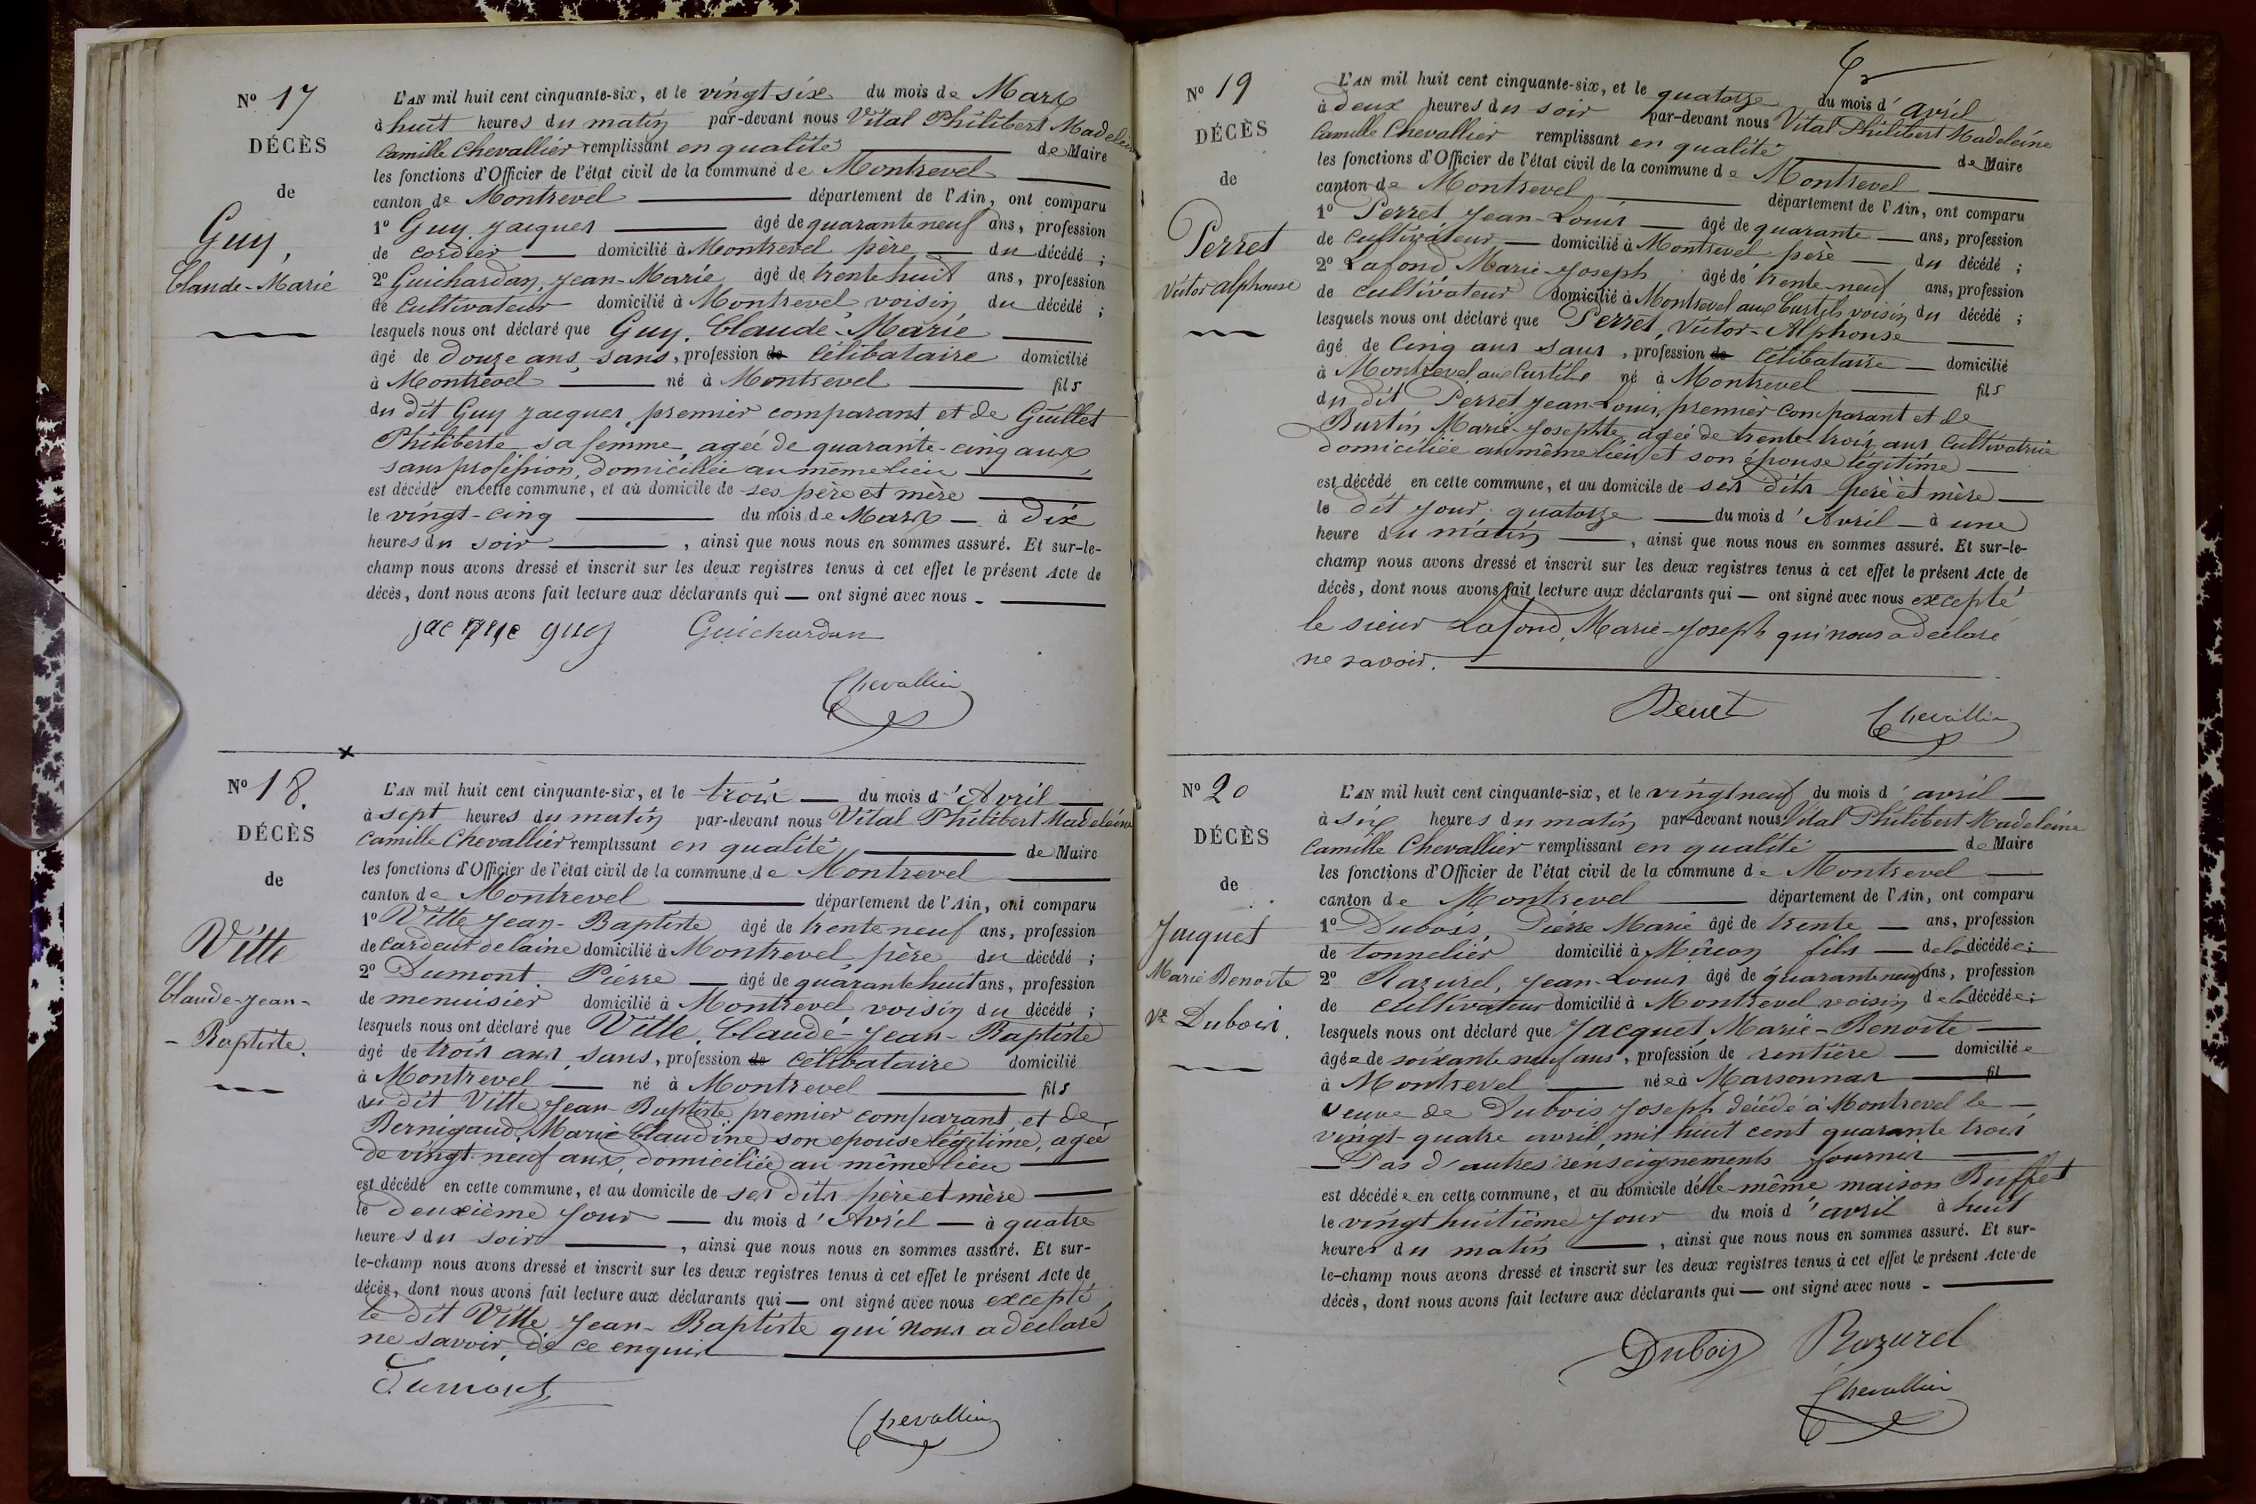 N° 17
DÉCÈS
de
Guy,
Claude-Marie
L'AN mil huit cent cinquante-six, et le vingt six du mois de Mars
à huit heures du matin par-devant nous Vital Philibert Madeleine
Camille Chevallier remplissant en qualité de Maire
les fonctions d'Officier de l'état civil de la commune de Montrevel
canton de Montrevel département de l'Ain, ont comparu
1° Guy Jacques âgé de quarante neuf ans, profession
de cordier domicilié à Montrevel père du décédé ;
2° Guichardan, Jean-Marie âgé de trente huit ans, profession
de cultivateur domicilié à Montrevel voisin du décédé ;
lesquels nous ont déclaré que Guy, Claude-Marie
âgé de douze ans, sans, profession de célibataire domicilié
à Montrevel né à Montrevel fils
du dit Guy Jacques premier comparant et de Guillet
Philiberte sa femme, agée de quarante-cinq ans
sans profession, domiciliée au même lieu
est décédé en cette commune, et au domicile de ses père et mère
le vingt-cinq du mois de Mars à dix
heures du soir , ainsi que nous nous en sommes assuré. Et sur-le-
champ nous avons dressé et inscrit sur les deux registres tenus à cet effet le présent Acte de
décès, dont nous avons fait lecture aux déclarants qui — ont signé avec nous -
jacque guy Guichardan
Chevallier
N° 18.
DÉCÈS
de
Vitte
Claude-Jean-
- Baptiste.
L'AN mil huit cent cinquante-six, et le trois du mois d'Avril
à sept heures du matin par-devant nous Vital Philibert Madeleine
Camille Chevallier remplissant en qualité de Maire
les fonctions d'Officier de l'état civil de la commune de Montrevel
canton de Montrevel département de l'Ain, ont comparu
1° Vitte Jean-Baptiste âgé de trente neuf ans, profession
de cardeur de laine domicilié à Montrevel père du décédé ;
2° Dumont. Pierre âgé de quarante huit ans, profession
de menuisier domicilié à Montrevel voisin du décédé ;
lesquels nous ont déclaré que Vitte, Claude-Jean-Baptiste
âgé de trois ans, sans, profession de célibataire domicilié
à Montrevel né à Montrevel fils
du dit Vitte Jean-Baptiste premier comparant, et de
Bernigaud, Marie Claudine son epouse légitime, agée
de vingt-neuf ans, domiciliée au même lieu
est décédé en cette commune, et au domicile de ses dits père et mère
le deuxième jour du mois d'Avril à quatre
heures du soir , ainsi que nous nous en sommes assuré. Et sur-
le-champ nous avons dressé et inscrit sur les deux registres tenus à cet effet le présent Acte de
décès, dont nous avons fait lecture aux déclarants qui — ont signé avec nous excepté
le dit Vitte Jean-Baptiste qui nous a déclaré
ne savoir de ce enquis
Dumont
Chevallier
N° 19
DÉCÈS
de
Perret
Victor Alphonse
L'AN mil huit cent cinquante-six, et le quatorze du mois d'Avril
à deux heures du soir par-devant nous Vital Philibert Madeleine
Camille Chevallier remplissant en qualité de Maire
les fonctions d'Officier de l'état civil de la commune de Montrevel
canton de Montrevel département de l'Ain, ont comparu
1° Perret Jean-Louis âgé de quarante ans, profession
de cultivateur domicilié à Montrevel père du décédé ;
2° Lafond Marie-Joseph âgé de trente-neuf ans, profession
de cultivateur domicilié à Montrevel aux Curtils voisin du décédé ;
lesquels nous ont déclaré que Perret, Victor-Alphonse
âgé de cinq ans sans, profession de célibataire domicilié
à Montrevel aux Curtils né à Montrevel fils
du dit Perret Jean-Louis premier comparant et de
Burtin Marie-Josephte, agée de trente-trois ans cultivatrice
domiciliée au même lieu et son épouse légitime
est décédé en cette commune, et au domicile de ses dits père et mère
le dit jour quatorze du mois d'Avril à une
heure du matin , ainsi que nous nous en sommes assuré. Et sur-le-
champ nous avons dressé et inscrit sur les deux registres tenus à cet effet le présent Acte de
décès, dont nous avons fait lecture aux déclarants qui — ont signé avec nous excepté
le sieur Lafond, Marie-Joseph qui nous a declaré
ne savoir.
Perret Chevallier
N° 20
DÉCÈS
de
Jacquet
Marie Benoite
Ve Dubois.
L'AN mil huit cent cinquante-six, et le vingt neuf du mois d'avril
à six heures du matin par-devant nous Vital Philibert Madeleine
Camille Chevallier remplissant en qualité de Maire
les fonctions d'Officier de l'état civil de la commune de Montrevel
canton de Montrevel département de l'Ain, ont comparu
1° Dubois, Pierre Marie âgé de trente ans, profession
de tonnelier domicilié à Mâcon fils de la décédée ;
2° Razurel, Jean-Louis âgé de quarante neuf ans, profession
de cultivateur domicilié à Montrevel voisin de la décédée ;
lesquels nous ont déclaré que Jacquet Marie-Benoite
âgée de soixante neuf ans, profession de rentière domiciliée
à Montrevel née à Marsonnas fil
veuve de Dubois Joseph décédé à Montrevel le
vingt-quatre avril mil huit cent quarante trois
Pas d'autres renseignements fournis
est décédée en cette commune, et au domicile d'elle-même maison Buffet
le vingt huitième jour du mois d'avril à huit
heures du matin , ainsi que nous nous en sommes assuré. Et sur-
le-champ nous avons dressé et inscrit sur les deux registres tenus à cet effet le présent Acte de
décès, dont nous avons fait lecture aux déclarants qui — ont signé avec nous -
Dubois Razurel
Chevallier